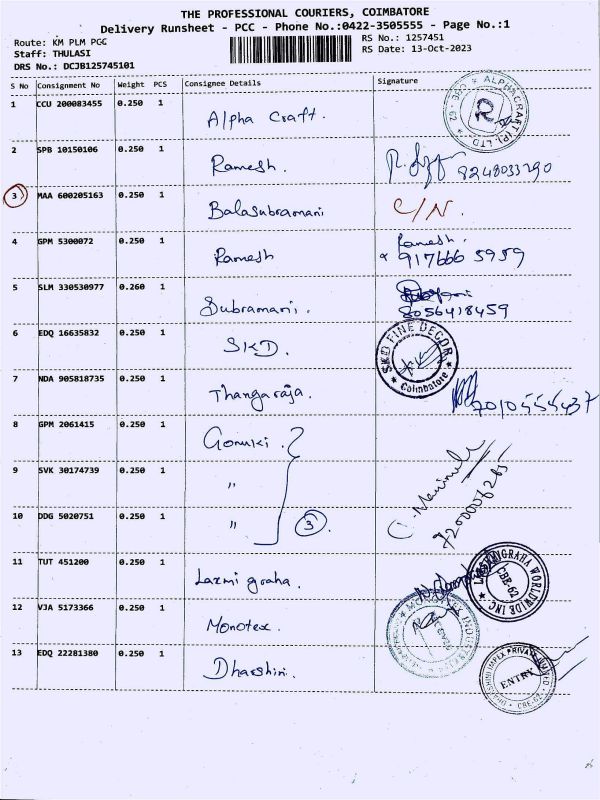 THE PROFESSIONAL COURIERS, COIMBATORE
Delivery Runsheet - PCC - Phone No.:0422-3505555 - Page No.:1
Route: KM PLM PGC
RS No.: 1257451
Staff: THULASI
RS Date: 13-Oct-2023
DRS No.: DCJB125745101
S No Consignment No Weight PCS Consignee Details Signature
1 CCU 200083455 0.250 1 Alpha Craft.
ALPHACRAFT (P) LTD ★ CBE - 62 ★
2 SPB 10150106 0.250 1 Ramesh. 8248033290
3 MAA 600205163 0.250 1 Balasubramani C/N.
4 GPM 5300072 0.250 1 Ramesh Ramesh.
917666 5959
5 SLM 330530977 0.260 1 Subramani.
8056418459
6 EDQ 16635832 0.250 1 SKD.
SKD FINE DECOR ★ Coimbatore ★
7 NDA 905818735 0.250 1 Thangaraja. 7010555437
8 GPM 2061415 0.250 1
9 SVK 30174739 0.250 1 "
10 DDG 5020751 0.250 1 " 3
7200006285
11 TUT 451200 0.250 1 Laxmi graha.
LAKSHMIGRAHA WORLDWIDE INC ★ CBE-62
12 VJA 5173366 0.250 1 Monotex.
13 EDQ 22281380 0.250 1 Dharshini.
DHARSHINI IMPEX PRIVATE LIMITED ★ CBE-62 ★
ENTRY